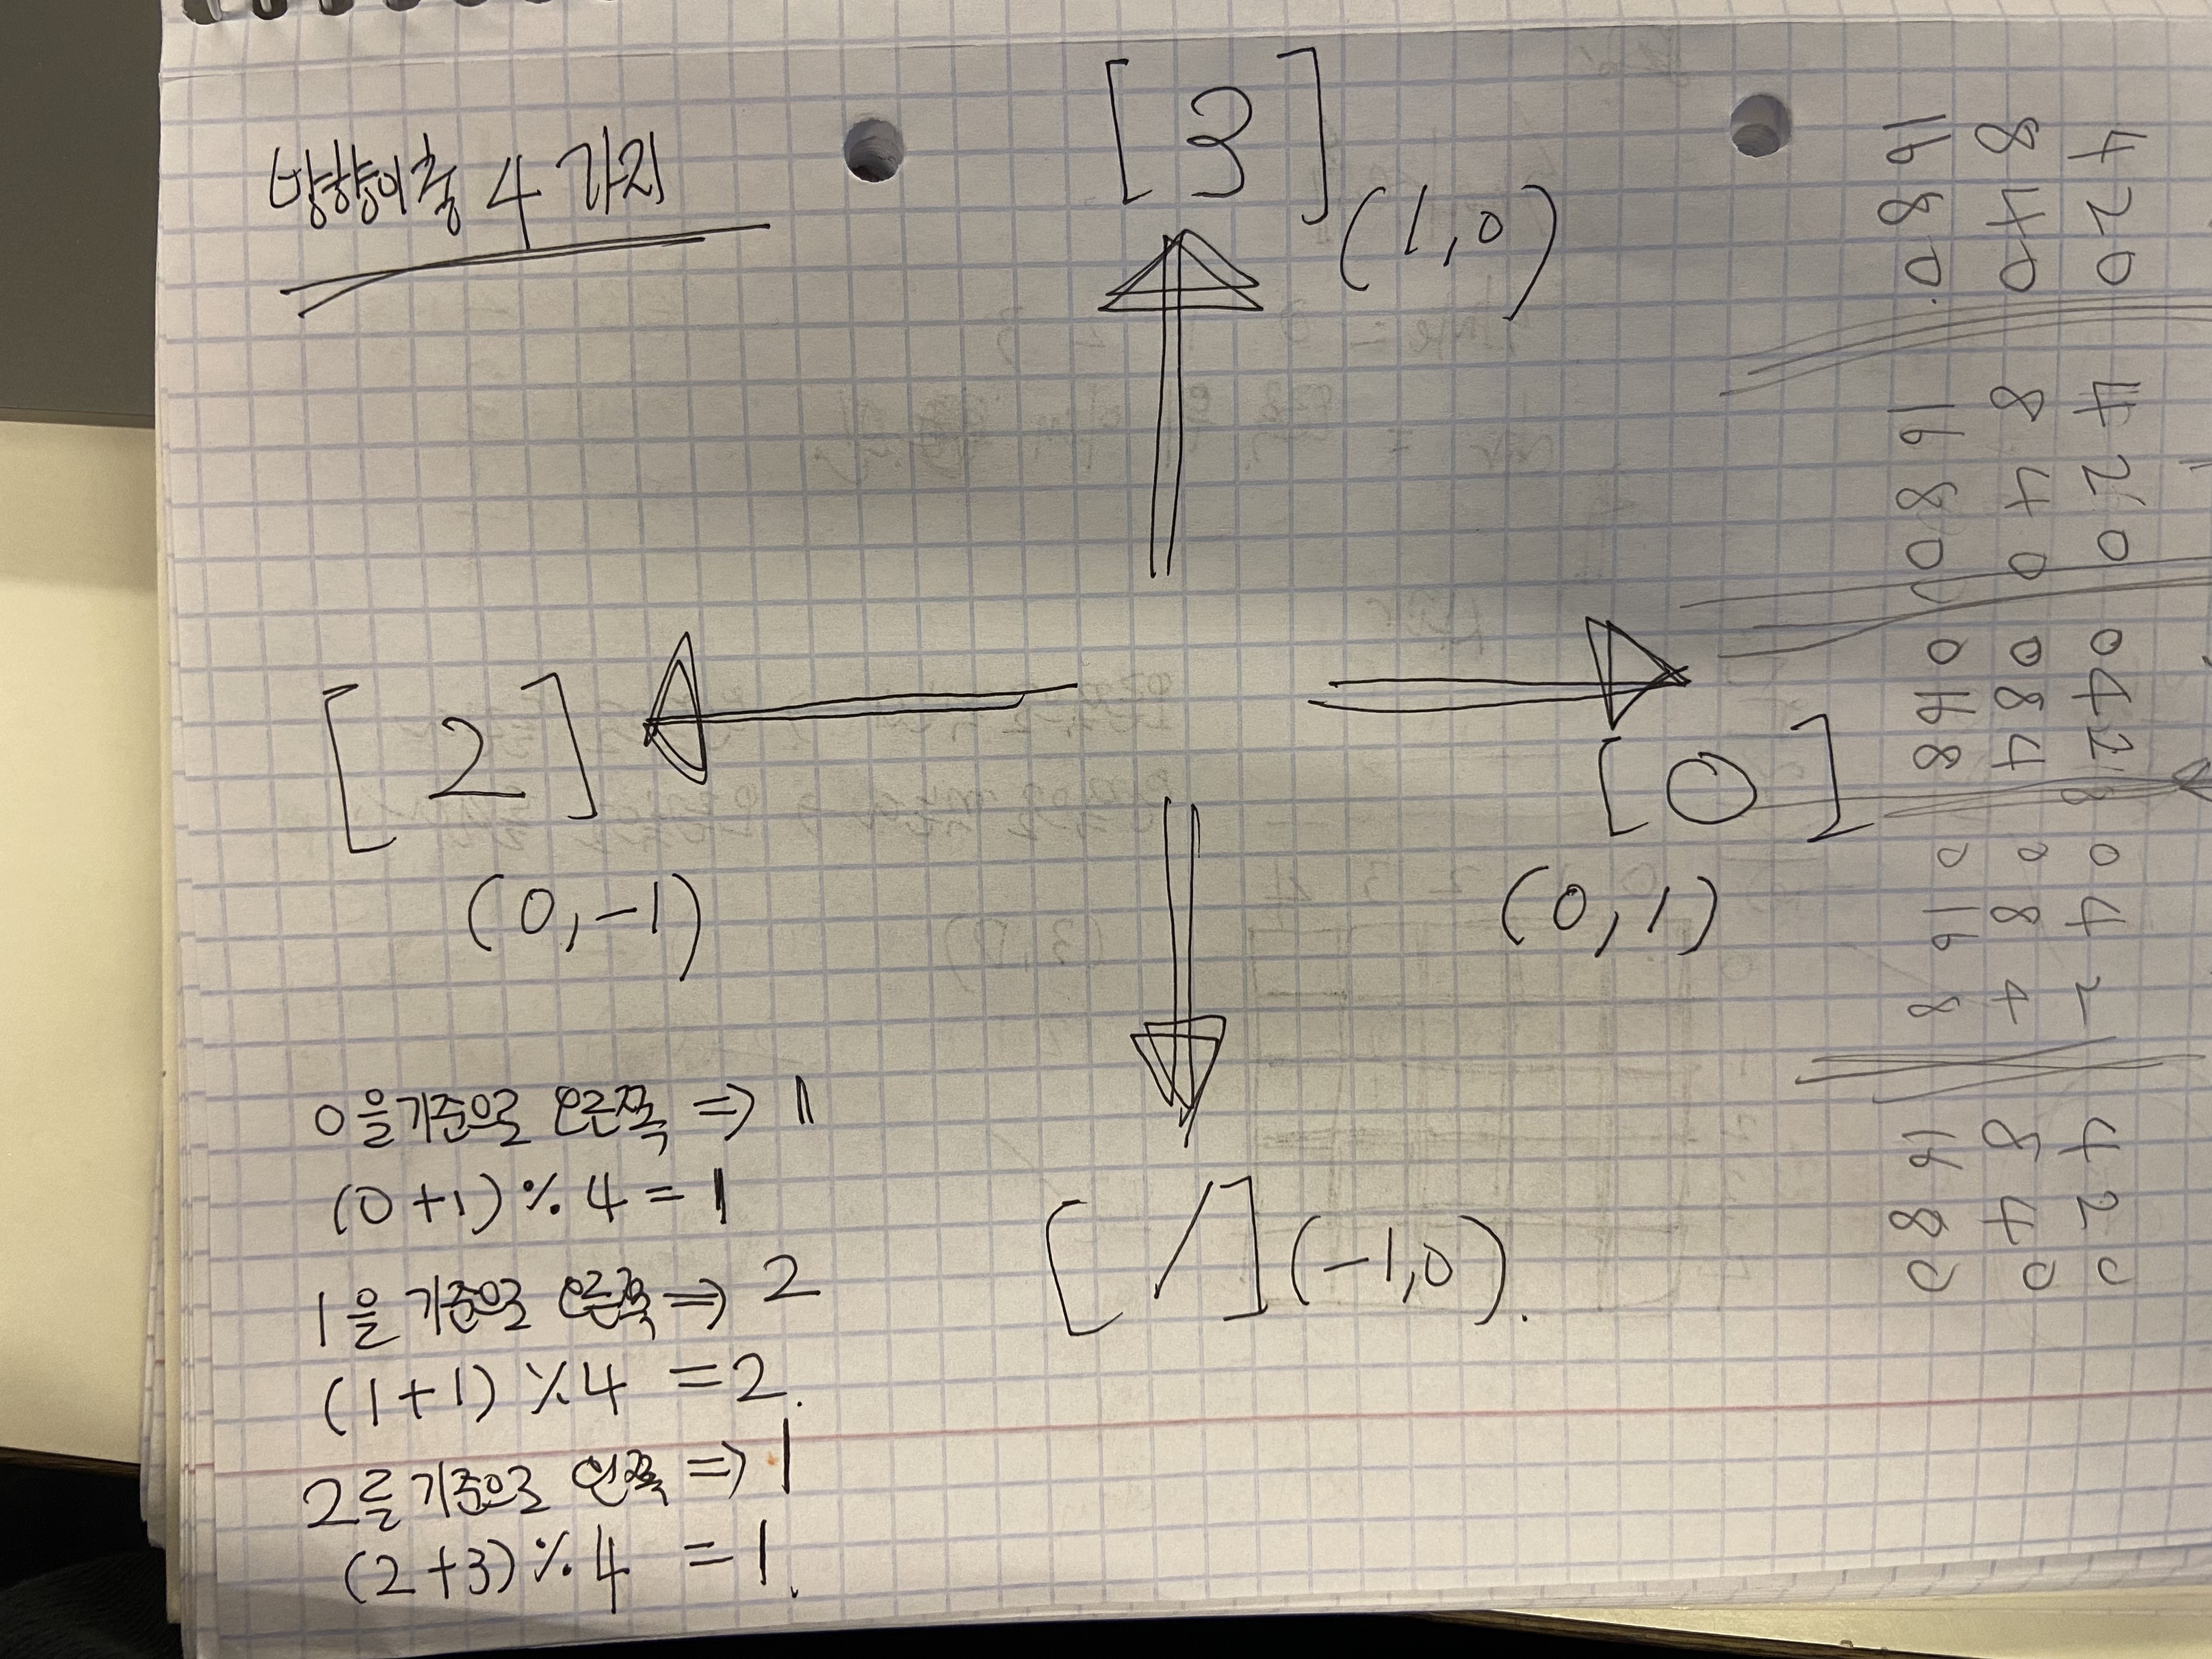 방향이총 4 가지
[3]
(1,0)
[2]
(0,-1)
[0]
(0,1)
[1] (-1,0).
0을 기준으로 오른쪽 => 1
(0+1) % 4 = 1
1을 기준으로 오른쪽 => 2
(1+1) % 4 = 2.
2를 기준으로 왼쪽 => 1
(2+3) % 4 = 1.
4 2 0
8 4 0
16 8 0.
4 2 0
8 4 0
16 8 0
0 4 2
0 8 4
0 16 8
0 4 2
0 8 4
0 16 8
4 2 0
8 4 0
16 8 0